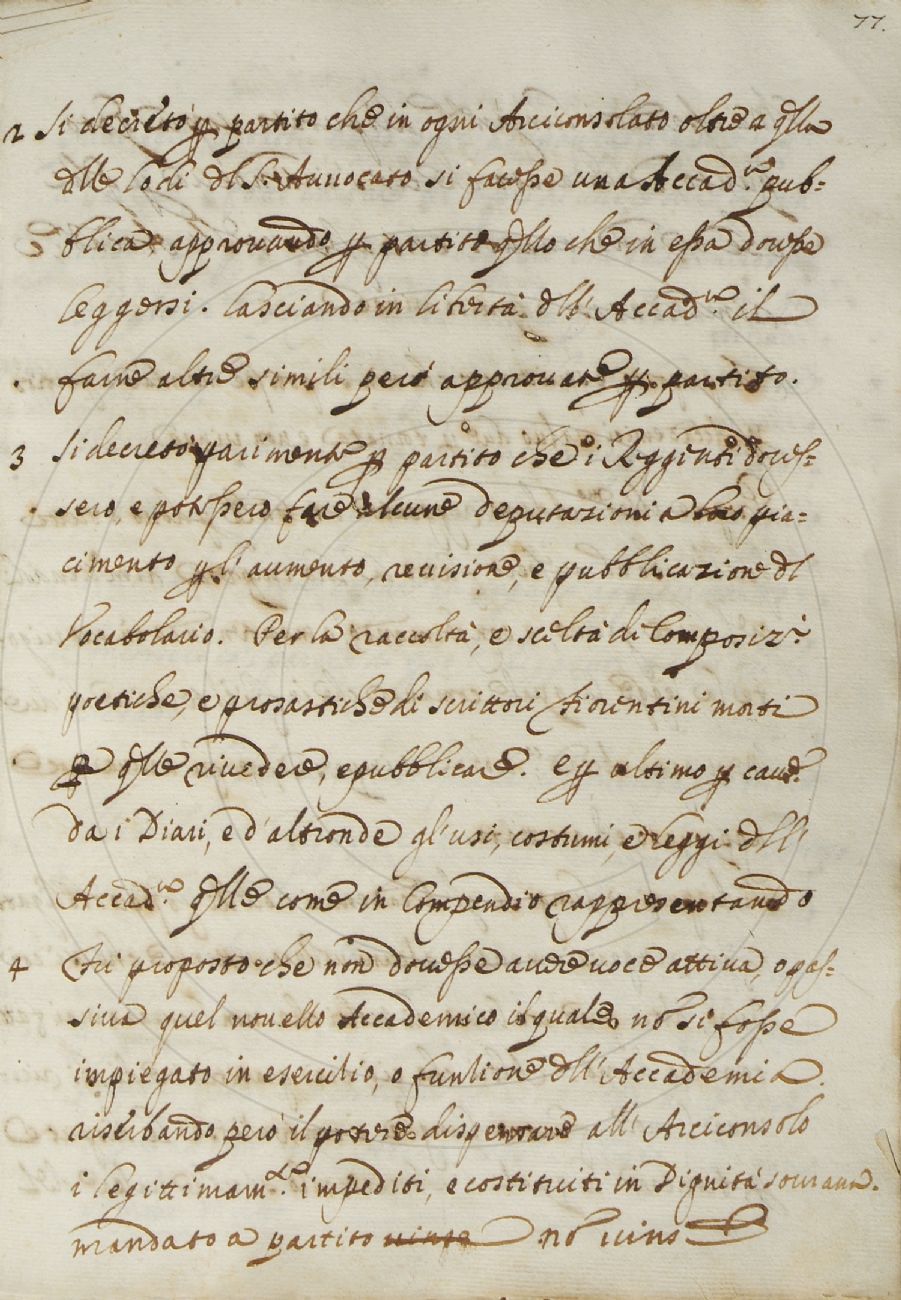 77.
2 Si decretò p partito che in ogni Arciconsolato oltre a qlla
dlle lodi dl S. Auuocato si facesse una Accad.ia pub=
blica approuando p partito qllo che in essa douesse
leggersi. lasciando in libertà dll' Accad.ia il
farne altre simili però approuate p partito.
3 Si decretò parimente p partito che i Reggenti doues=
sero, e potessero fare alcune deputazioni a loro pia=
cimento p l'aumento, reuisione, e pubblicazione dl
Vocabolario. Per la raccolta, e scelta di Composiz.i
poetiche, e prosastiche di scrittori fiorentini morti
p qlle riuedere, e pubblicare. e p ultimo p cauare
da i Diari, e d'altronde gl'usi, costumi, e leggi dll'
Accad.ia qlle come in Compendio rappresentando
4 Fu proposto che non douesse auere uoce attiua, o pas=
siua quel nouello Accademico il quale nō si fosse
impiegato in esercitio, o funtione dll' Accademia.
riserbando però il potere dispensare all' Arciconsolo
i legittimam.te impediti, e costituiti in Dignità sourana.
mandato a partito uinto nō uinto